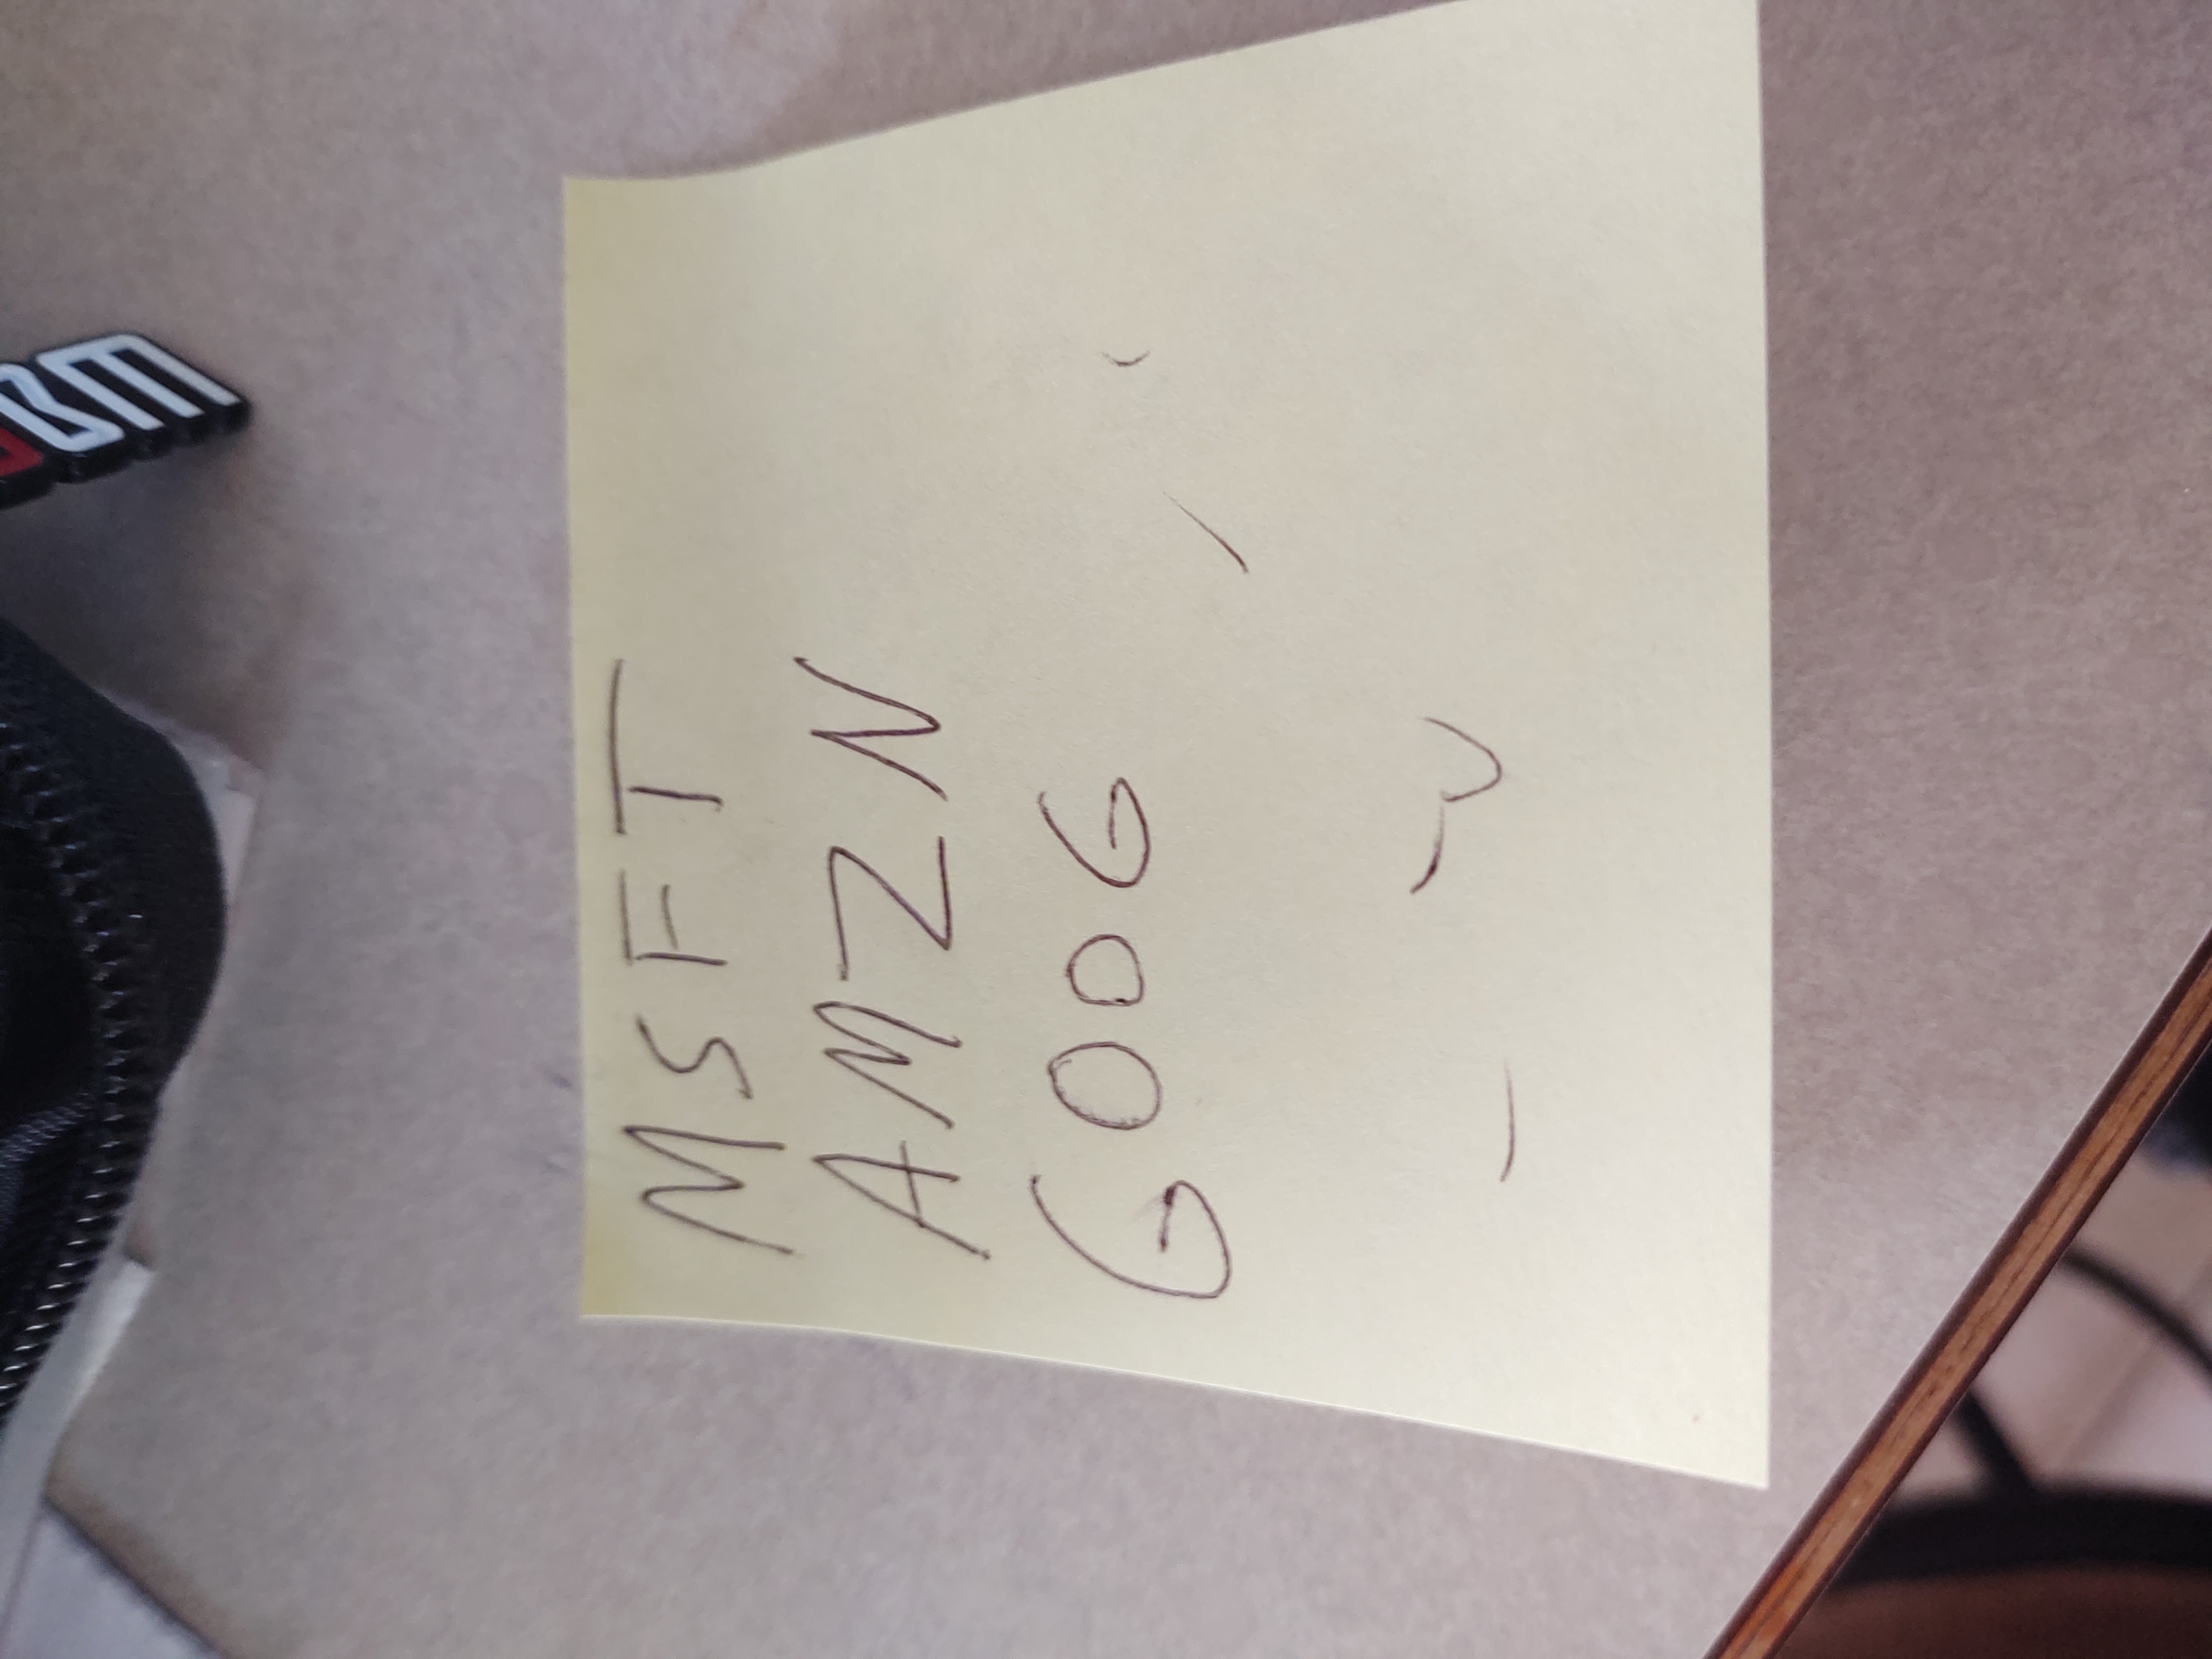 MSFT
AMZN
GOOG